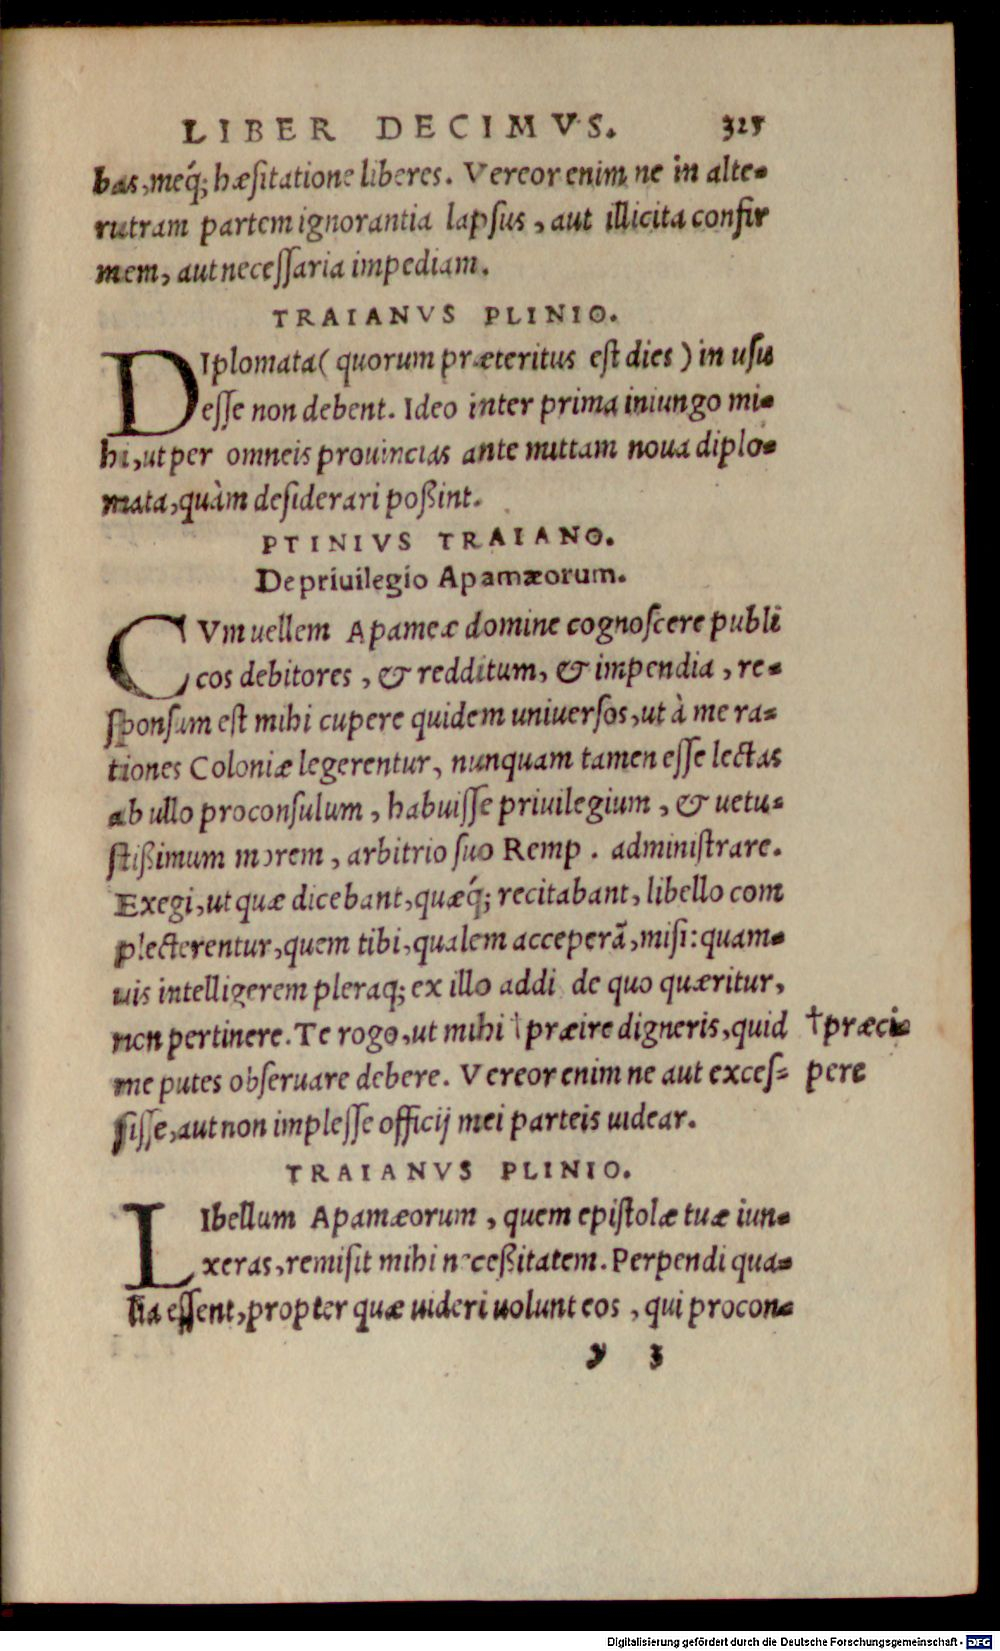 LIBER DECIMVS. 325
bas, meq́; hæſitatione liberes. Vereor enim ne in alte-
rutram partem ignorantia lapſus, aut illicita confir
mem, aut neceſſaria impediam.
TRAIANVS PLINIO.
DIplomata (quorum præteritus eſt dies) in uſu
eſſe non debent. Ideo inter prima iniungo mi-
hi, ut per omneis prouincias ante mittam noua diplo-
mata, quàm deſiderari poßint.
PTINIVS TRAIANO.
De priuilegio Apamæorum.
CVm uellem Apameæ domine cognoſcere publi
cos debitores, & redditum, & impendia, re-
ſponſum eſt mihi cupere quidem uniuerſos, ut à me ra-
tiones Coloniæ legerentur, nunquam tamen eſſe lectas
ab ullo proconſulum, habuiſſe priuilegium, & uetu-
ſtißimum morem, arbitrio ſuo Remp. adminiſtrare.
Exegi, ut quæ dicebant, quæq́; recitabant, libello com
plecterentur, quem tibi, qualem acceperã, miſi: quam-
uis intelligerem pleraq; ex illo addi de quo quæritur,
non pertinere. Te rogo, ut mihi †præire digneris, quid †præci-
me putes obſeruare debere. Vereor enim ne aut exceſ- pere
ſiſſe, aut non impleſſe officij mei parteis uidear.
TRAIANVS PLINIO.
LIbellum Apamæorum, quem epiſtolæ tuæ iun-
xeras, remiſit mihi neceßitatem. Perpendi qua-
lia eſſent, propter quæ uideri uolunt eos, qui procon-
y 3
Digitalisierung gefördert durch die Deutsche Forschungsgemeinschaft - DFG